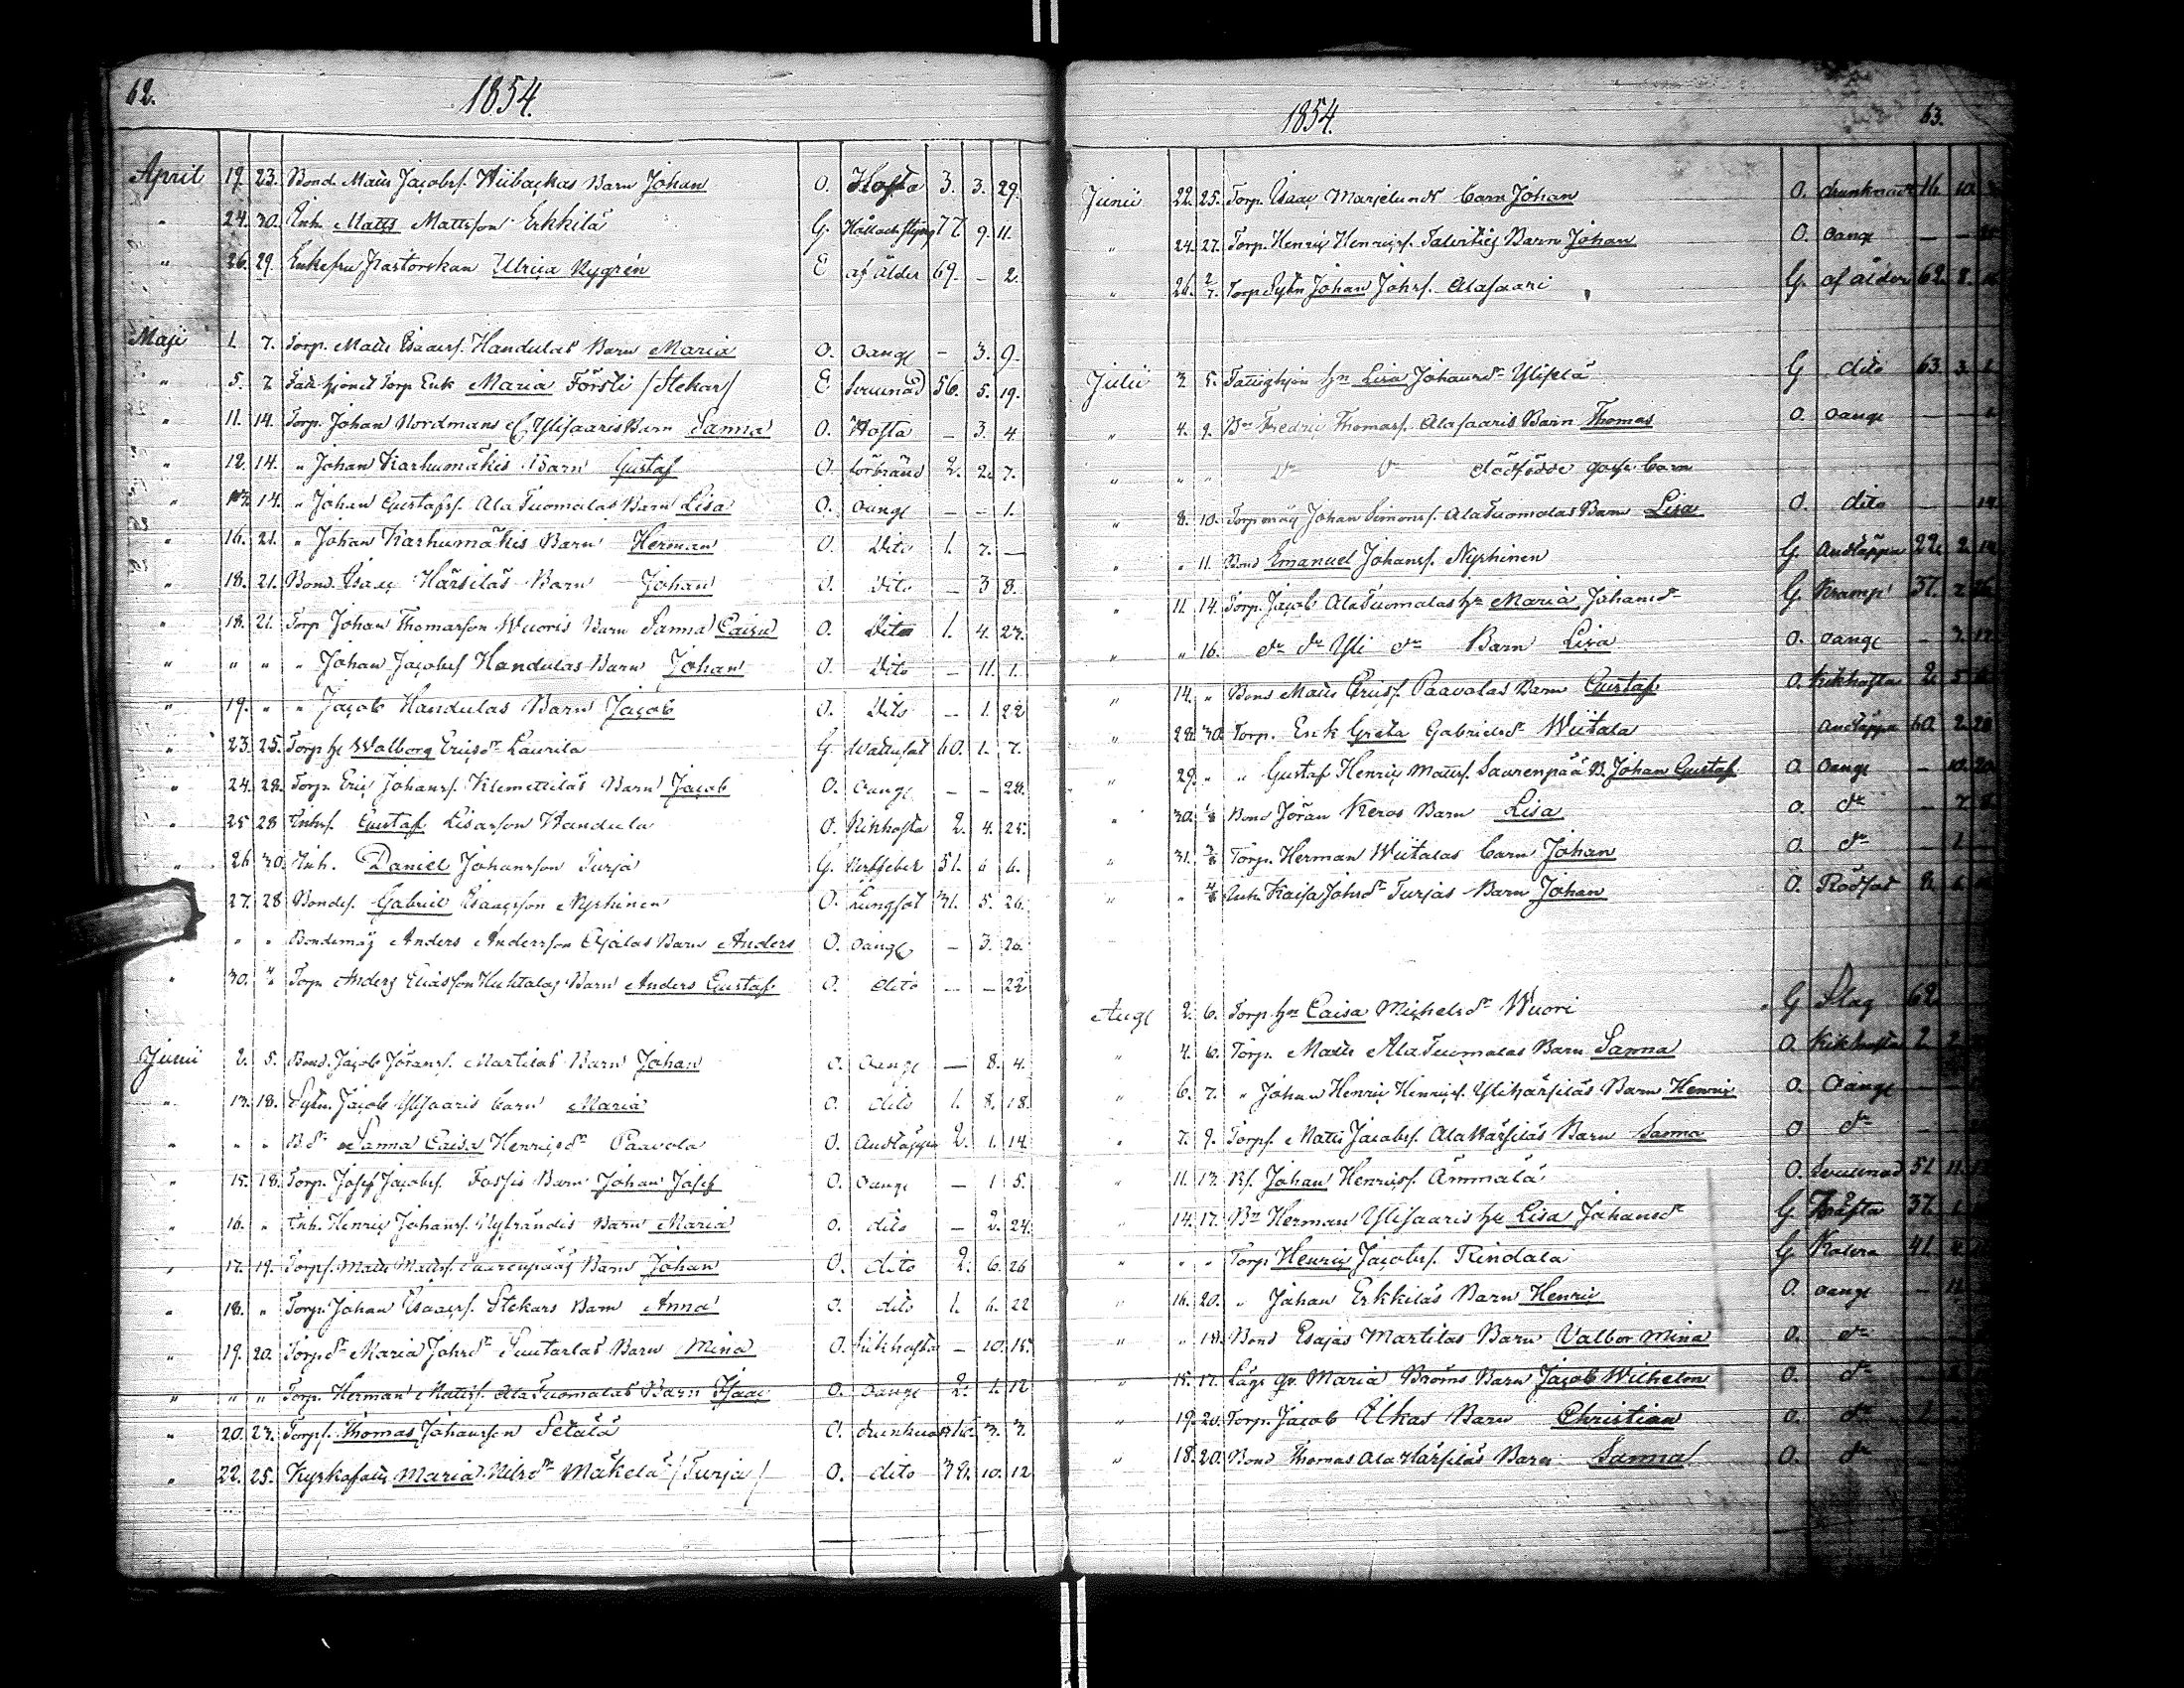 62.
1854.
April 19. 23. Bond. Matts Jacobs. Wiibackas Barn Johan O. Hosta 3. 3. 29.
" 24. 30. Inh. Matts Mattsson Erkkilä G. Håll och styng 77. 9. 11.
" 26. 29. Enkefru Pastorskan Ulrica Nygrén E af ålder 69. – 2.
Maji 1. 7. Torp. Matts Isaacs. Handulas Barn Maria O. oange – 3. 9.
" 5. 7. Enk Maria Försti /Stekar/ E 56. 5. 19.
" 11. 14. Torp. Johan Nordmans Ylisaaris Barn Sanna O. Hosta – 3. 4
" 12. 14. " Johan Karhumäkis Barn Gustaf O. förbränd 2. 2. 7.
" 13. 14. " Johan Gustafss. AlaTuomalas Barn Lisa O. oange – – 1.
" 16. 21. " Johan Karhumäkis Barn Herman O. Dito 1. 7. –
" 18. 21. Bond. Isaac Härsiläs Barn Johan O. Dito – 3 8.
" 18. 21. Torp Johan Thomasson Wuoris Barn Sanna Caisa O. Dito 1. 4. 23.
" " " " Johan Jacobss Handulas Barn Johan O. Dito – 11. 1.
" 19. " " Jacob Handulas Barn Jacob O. Dito – 1. 22
" 23. 25. Torp. h. Walborg Ericsdr Laurila G. Wattusot 60. 1. 7.
" 24. 28. Torp. Eric Johanss. Klemettiläs Barn Jacob O. oange – – 28.
" 25 28 Gustaf Lisasson Handula O. Kikhosta 2. 4. 25.
" 26. 30. Inh. Daniel Johansson Turja G. Nerffeber 51. 6 6.
" 27. 28 Bondes. Gabriel Isaacsson Nyrhinen O. Lungsot 31. 5. 26.
" " Bondemåg Anders Andersson Ojalas Barn Anders O. oange – 3. 20.
" 30. Torp. Anders Eliasson Huhtalas Barn Anders Gustaf O. dito – – 22
Junii 2. 5. Bond. Jacob Jöranss. Martilas Barn Johan O. oange – 8. 4.
" 13. 18. Sytn. Jacob Ylisaaris barn Maria O. dito 1. 8. 18.
" " " B.dr Sanna Caisa Henricsdr Paavola O. Andtäppa 2. 1. 14.
" 15. 18. Torp. Josef Jacobss. Fossis Barn Johan Josef O. oange – 1 5.
" 16. " Inh. Henric Johanss. Nybrändis Barn Maria O. dito – 2. 24.
" 17. 19. Torps. Matts Mattss. Saarenpääs Barn Johan O. dito 2. 6. 26
" 18. " Torp. Johan Isaacss. Stekars Barn Anna O. dito 1. 6. 22
" 19. 20. Torp.dr Maria Johsdr Suutarlas Barn Mina O. Kikhosta – 10. 15.
" " " Torp. Herman Mattss. AlaTuomalas Barn Isaac O. oange 2. 1. 12
" 20. 23. Torps. Thomas Johansson Setälä O. drunknad 3. 3.
" 22. 25. Maria Nilsdr Mäkelä /Turja/ O. dito 32. 10. 12
1854.
63.
Junii 22. 25. Torp. Isaac Marjelunds barn Johan O. drunknad 16. 10.
" 24. 27. Torp. Henric Henricss. Talvities Barn Johan O. oange – –
" 26. 2/7. Torp. Sytn Johan Johss. Alasaari G. af ålder 62. 8.
Julii 3. 5. Fattighjon hn Lisa Johansdr Ylipiä G dito 63 3. 1
" 4. 9. Bn Fredric Thomass. Alasaaris Barn Thomas O. oange – –
" " " Dn Dn dödfödde gosse barn
" 8. 10. Torpmåg Johan Simonss. AlaTuomalas Barn Lisa O. dito – – 14
" " 11. Bond Emanuel Johanss. Nyrhinen G. Andtäppa 22. 2.
" 11. 14. Torp. Jacob AlaTuomalas hn Maria Johansdr G. Kramp 37. 2
" " 16. dn dn Yli dn Barn Lisa O. oange – 7. 17.
" 14. " Bond Matts Ericss. Paavolas Barn Gustaf O. Kikhosta 2. 5
" 28. 30. Torp. Enk Greta Gabrielsdr Wiitala Andtäppa 60 2. 20
" 29. " " Gustaf Henric Mattss. Saarenpää B. Johan Gustaf O. oange – 10. 20.
" 30. 1/8 Bond Jöran Keros Barn Lisa O. dn – 7.
" 31. 3/8 Torp. Herman Wiitalas barn Johan O. dn – 1
" " 4/8 Inh. Kaisa Johsdr Turjas Barn Johan O. Rödsot 2. 6.
Aug 2. 6. Torp. hn Caisa Michelsdr Wuori G Slag 62.
" 4. 6. Torp. Matts AlaTuomalas Barn Sanna O. Kikhosta 2 2
" 6. 7. " Johan Henric Henricss. Ylihärsiläs Barn Henric O. Oange –
" 7. 9. Torps. Matts Jacobss. AlaHärsiläs Barn Sanna O dn –
" 11. 13. Bs. Johan Henricss. Ämmälä O. 51 11.
" 14. 17. Bn Herman Ylisaaris hu Lisa Johansdr G. Håfta 37. 1.
" " " Torp Henric Jacobss. Rindala G Kolera 41. 4
" 16. 20. " Johan Erkkiläs Barn Henric O. oange – 11.
" " 18. Bond Esajas Martilas Barn Valbor Mina O. dn
" 15. 17. Maria Broms Barn Jacob Wilhelm O. dn
" 19. 20. Torp. Jacob Ulkas Barn Christian O. dn
" 18. 20. Bond Thomas AlaHärsiläs Barn Sanna O. dn